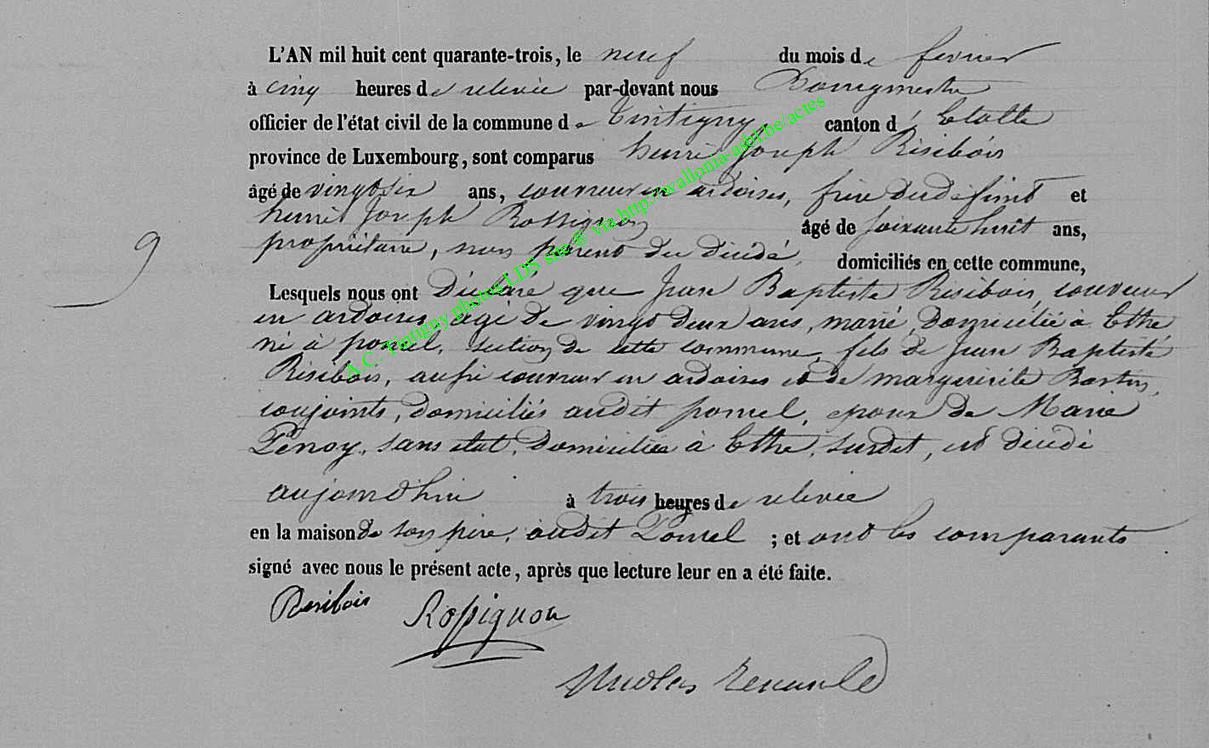 L'AN mil huit cent quarante-trois, le neuf du mois de fevrier
à cinq heures de relevée par-devant nous Bourgmestre
officier de l'état civil de la commune de Tintigny, canton d'Etalle
province de Luxembourg, sont comparus henri Joseph Risibois
âgé de vingt six ans, couvreur en ardoises, frère du défunt et
henri Joseph Rossignon âgé de soixante huit ans,
propriétaire, non parent du décédé, domiciliés en cette commune,
9
Lesquels nous ont Déclaré que Jean Baptiste Risibois, couvreur
en ardoises, agé de vingt deux ans, marié, domicilié à Ethe
né à poncel, section de cette commune, fils de Jean Baptiste
Risibois, aussi couvreur en ardoises et de marguerite Bastin,
conjoints, domiciliés audit poncel, epoux de Marie
Penoy, sans etat, domiciliée à Ethe, susdit, est décédé
aujourd'hui à trois heures de relevée
en la maison de son père, audit Poncel ; et ont les comparants
signé avec nous le présent acte, après que lecture leur en a été faite.
Risibois Rossignon
Nicolas
A.C. Tintigny photos LDS site © via http://wallonia-asbl.be/actes